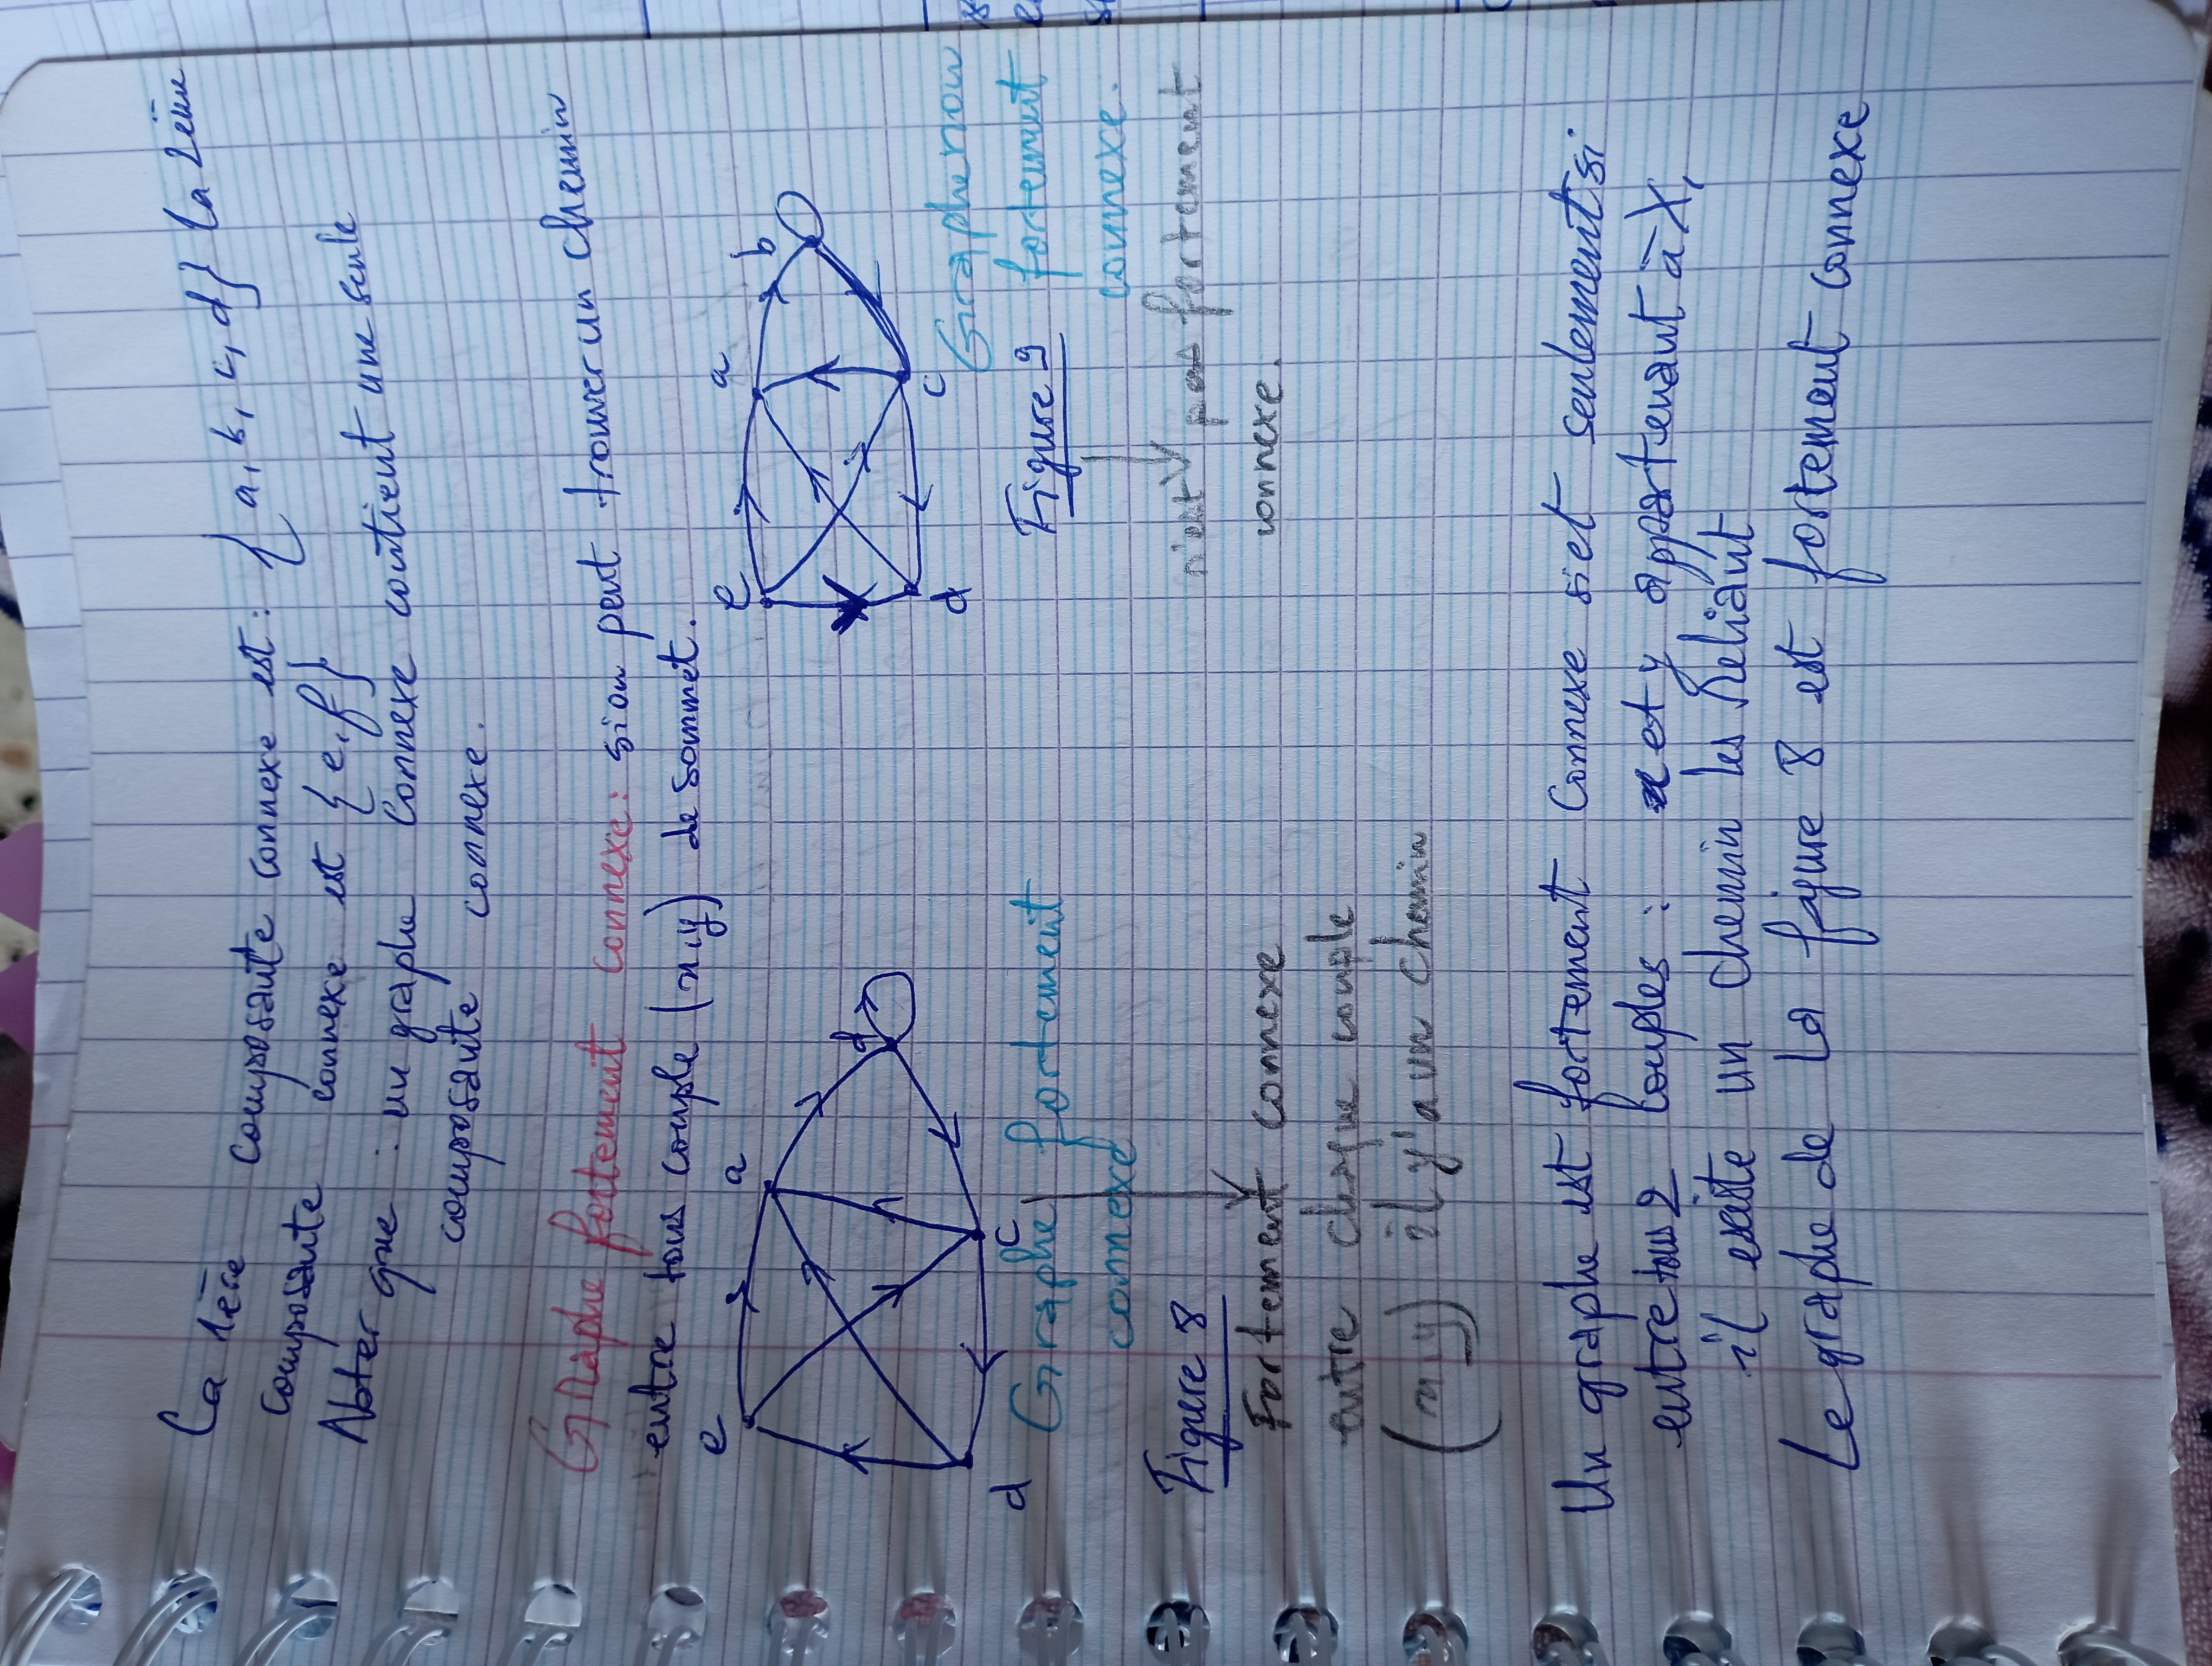 La 1ère composante connexe est : { a, b, c, d} la 2ème
composante connexe est {e,f}
Noter que : un graphe connexe contient une seule
composante connexe.
Graphe fortement connexe : si on peut trouver un chemin
entre tous couple (x,y) de sommet.
e a d c d
e a b d c
Graphe fortement
connexe
Graphe non
Figure 9 fortement
connexe.
Figure 8
n'est pas fortement
connexe.
Fortement connexe
entre chaque couple
(x,y) il y'a un chemin
Un graphe est fortement connexe si et seulement si
entre tous 2 couples : x et y appartenant à X,
il existe un chemin les reliant
Le graphe de la figure 8 est fortement connexe